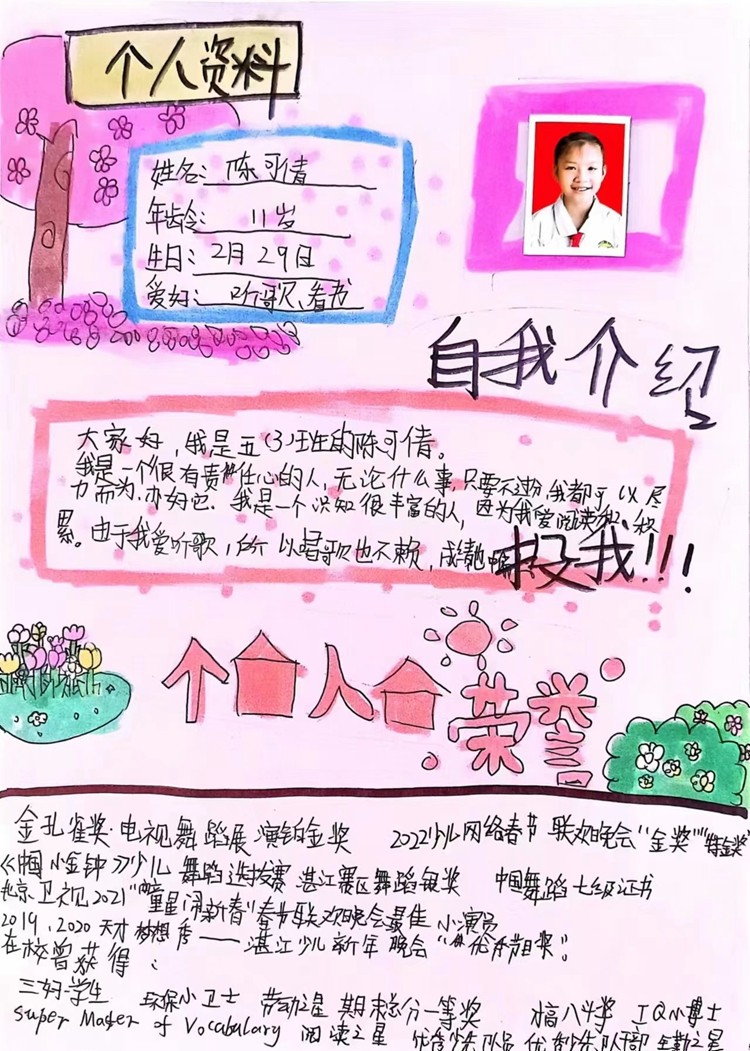 个人资料
姓名: 陈可倩
年龄: 11岁
生日: 2月29日
爱好: 听歌、看书
自我介绍
大家好,我是五(3)班的陈可倩。
我是一个很有责任心的人,无论什么事,只要不过分,我都可以尽
力而为,办好它.我是一个识知很丰富的人,因为我爱阅读和积
累。由于我爱听歌,所以唱歌也不赖,
投我!!!
个人荣誉
金孔雀奖·电视舞蹈展演铂金奖 2022少儿网络春节联欢晚会"金奖"
小金钟》少儿舞蹈选拔赛湛江赛区舞蹈银奖 中国舞蹈七级证书
北京卫视2021" 闹新春"春节联欢晚会最佳小演员
2019、2020天才梦想秀——湛江少儿新年晚会"优秀节目奖"。
在校曾获得:
三好学生 环保小卫士 劳动之星 期末总分一等奖 才高八斗学 IQ小博士
super Master of Vocabulary 阅读之星 优秀少先队员 优秀少先队干部 全勤之星